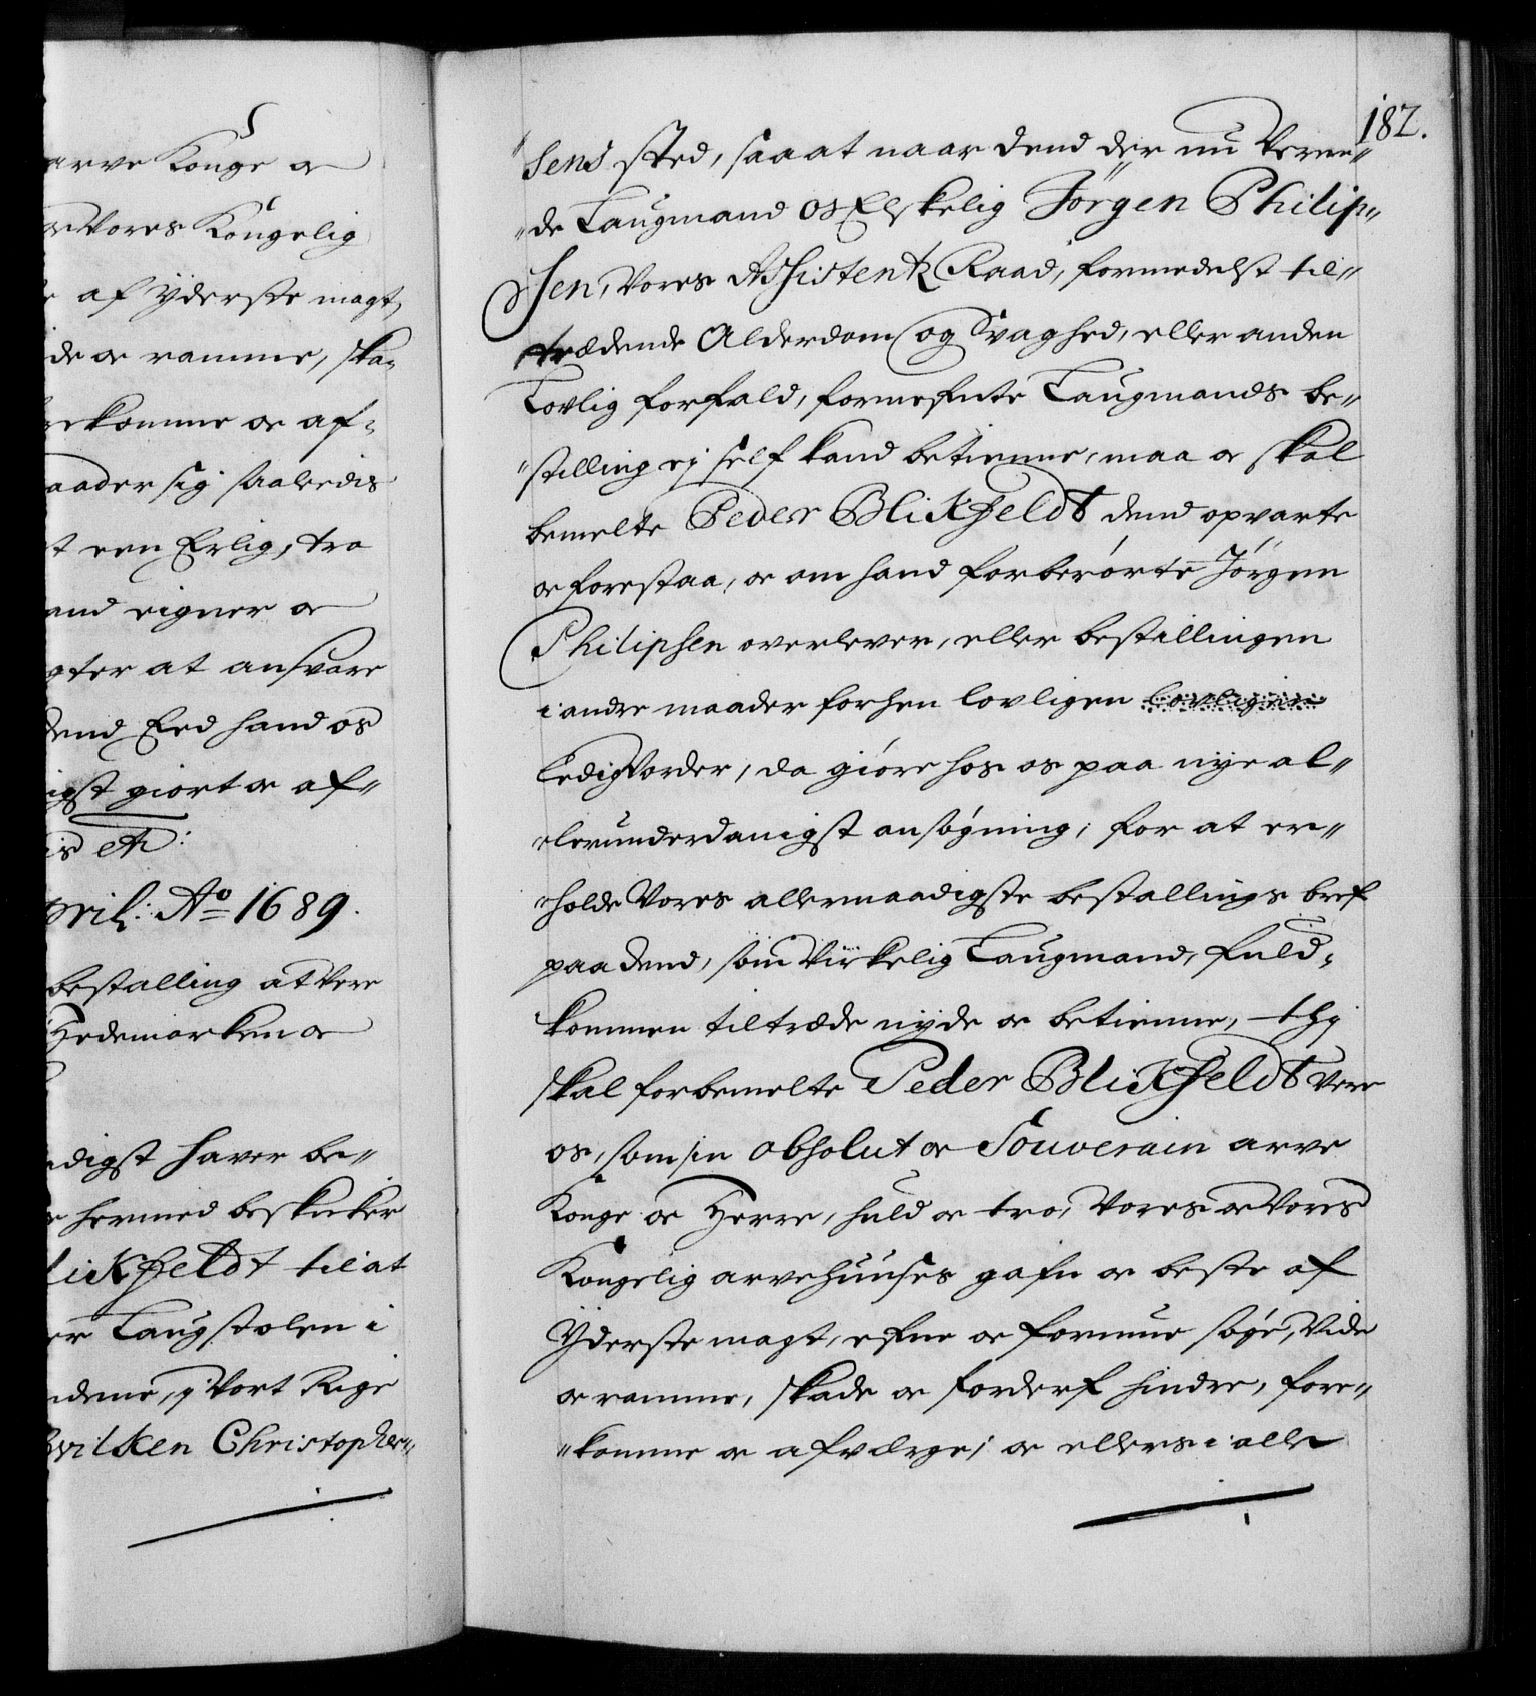 arve Konge oc
oc Vores Kongelig
af Yderste magt,
de oc ramme, ska-
rekomme oc af-
aader sig saaledis
t een Erlig, tro
and eigner oc
gter at ansvare
dend Eed hand os
igst giort oc af-
is etc:
pril: Ao 1689.
bestalling at Vere
Hedemarken oc
digst hafver be-
hermed beskicker
lickfeldt til at
er Laugstolen i
ndene, i Vort Rige
wilken Christopher-
182.
sens sted, saa at naar dend der nu Veren-
de Laugmand os Elskelig Jörgen Philip-
sen, Vores Assistentz Raad, formedelst til-
trædende Alderdom og Svaghed, eller anden
Lovlig forfald, formefnte Laugmands be-
stilling ej self kand betienne, maa oc skal
bemelte Peder Blikfeldt dend opvarte
oc forestaa, oc om hand forberörte Jörgen
Philipsen overlever, eller bestillingen
i andre maader forhen lovligen lovligen
Ledig Vorder, da giöre hos os paa nye al-
lerunderdanigst ansögning, for at er-
holde Vores allernaadigste bestallings bref
paa dend, som Virkelig Laugmand, fuld-
kommen tiltræde nyde oc betienne, thj
skal forbemelte Peder Blikfeldt Vere
os, som sin absolut oc Souverain arve
Konge oc Herre, huld oc tro, Vores oc Vores
Kongelig arvehuuses gafn oc beste af
Yderste magt, efne oc formue söge, Vide
oc ramme, skade oc forderf hindre, fore-
komme oc afverge, oc ellers i alle